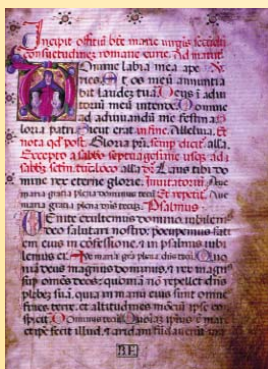 Incipit offitiū bt̄e marie virgīs secūdū
consuetudinez romane curie. Ad matut̄.
Domine labia mea ape
Et os meū annuntia
bit laudez tuā Deus ī adiu
toriū meū intende. Domine
ad adiuuandū me festina
loria patri. Sicut erat in fine. Alleluia. Et
nota qd̄ post Gloria pr̄i. semp dicit̄ alla.
Excepto a sabbo septuagesime usq; ad
sabb̄z sctm̄. tūc loco alla dr̄ Laus tibi do
mine rex eterne glorie. Inuitatoriū Aue
maria gratia plena dominus tecū Et repetit̄. Aue
maria gratia plena dn̄s tecuz. Psalmus
Uenite exultemus domino iubilem
deo salutari nostro: preocupemus faci
em eius in cōfessione, ⁊ in psalmis iubi
lemus ei. Aue maria gr̄a plena dn̄s tecū. Quo
niā deus magnus dominus, ⁊ rex magn
sup omēs deos: quoniā nō repellet dn̄s
plebez suā, quia in manu eius sunt omne
fines terre. et altitudines mōtiū ipse co
spicit Dominus tecū Quoniā ipsius ē mar